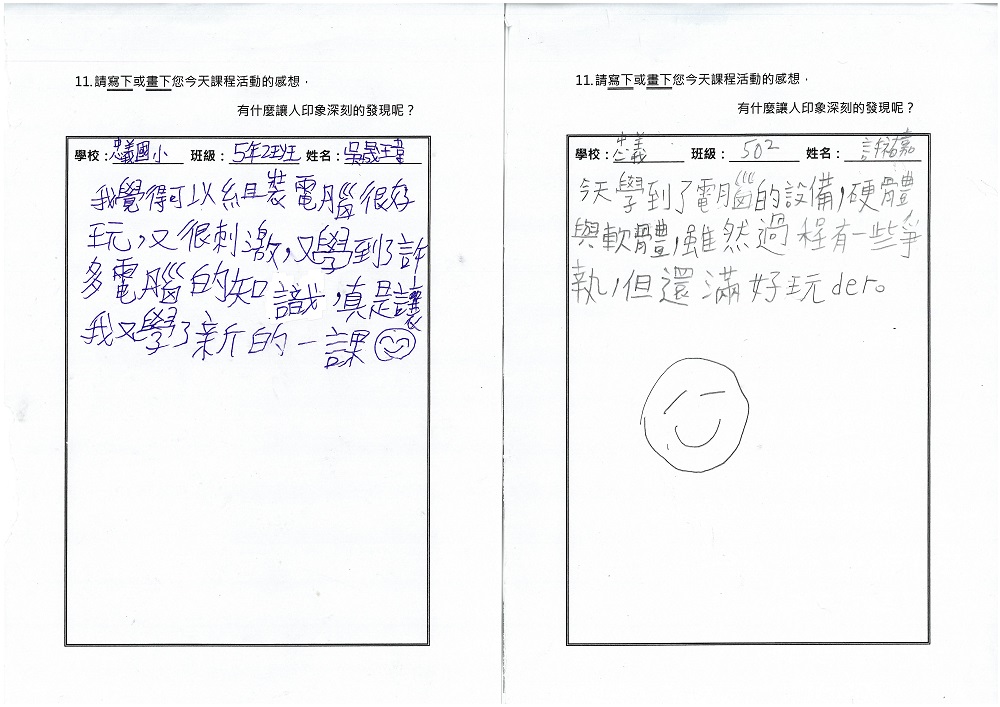 11.請寫下或畫下您今天課程活動的感想，
有什麼讓人印象深刻的發現呢？
學校：忠義國小 班級：5年2班 姓名：吳晟瑋
我覺得可以組裝電腦很好
玩，又很刺激，又學到了許
多電腦的知識，真是讓
我又學了新的一課
11.請寫下或畫下您今天課程活動的感想，
有什麼讓人印象深刻的發現呢？
學校：忠義 班級：502 姓名：許祐嘉
今天學到了電腦的設備，硬體
與軟體，雖然過程有一些爭
執，但還滿好玩der。